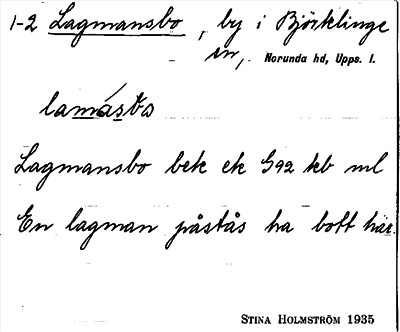 1-2 Lagmansbo, by i Björklinge
sn, Norunda hd, Upps. l.
lamásbo
Lagmansbo bek ek G92 kb ml
En lagman påstås ha bott här.
STINA HOLMSTRÖM 1935